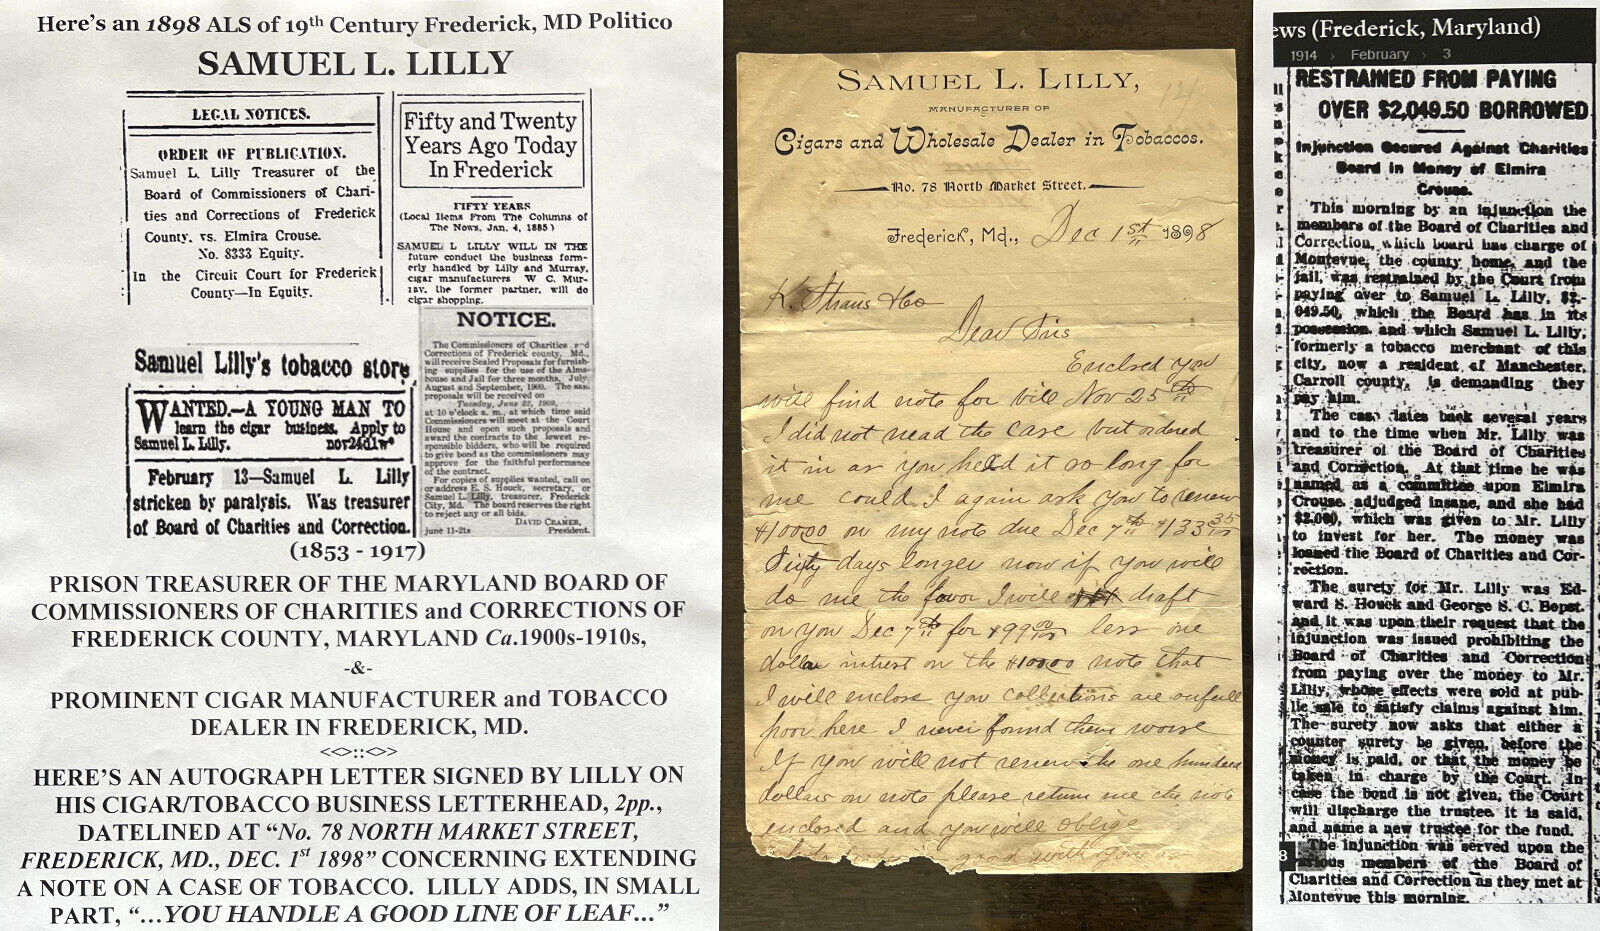 Here's an 1898 ALS of 19th Century Frederick, MD Politico
SAMUEL L. LILLY
LEGAL NOTICES.
ORDER OF PUBLICATION.
Samuel L. Lilly Treasurer of the
Board of Commissioners of Chari-
ties and Corrections of Frederick
County, vs. Elmira Crouse.
No. 8333 Equity.
In the Circuit Court for Frederick
County—In Equity.
Fifty and Twenty
Years Ago Today
In Frederick
FIFTY YEARS
(Local Items From The Columns of
The News, Jan. 4, 1885)
SAMUEL L LILLY WILL IN THE
future conduct the business form-
erly handled by Lilly and Murray,
cigar manufacturers W. C. Mur-
ray, the former partner, will do
cigar shopping.
Samuel Lilly's tobacco store
WANTED.—A YOUNG MAN TO
learn the cigar business. Apply to
Samuel L. Lilly. nov24d1w*
February 13—Samuel L. Lilly
stricken by paralysis. Was treasurer
of Board of Charities and Correction.
NOTICE.
The Commissioners of Charities and
Corrections of Frederick county, Md.,
will receive Sealed Proposals for furnish-
ing supplies for the use of the Alms-
house and Jail for three months, July,
August and September, 1909. The said
proposals will be received on
Tuesday, June 22, 1909,
at 10 o'clock a. m., at which time said
Commissioners will meet at the Court
House and open such proposals and
award the contracts to the lowest re-
sponsible bidders, who will be required
to give bond as the commissioners may
approve for the faithful performance
of the contract.
For copies of supplies wanted, call on
or address E. S. Houck, secretary, or
Samuel L. Lilly, treasurer, Frederick
City, Md. The board reserves the right
to reject any or all bids.
DAVID CRAMER,
june 11-2ts President.
(1853 - 1917)
PRISON TREASURER OF THE MARYLAND BOARD OF
COMMISSIONERS OF CHARITIES and CORRECTIONS OF
FREDERICK COUNTY, MARYLAND Ca.1900s-1910s,
-&-
PROMINENT CIGAR MANUFACTURER and TOBACCO
DEALER IN FREDERICK, MD.
<<>::<>>
HERE'S AN AUTOGRAPH LETTER SIGNED BY LILLY ON
HIS CIGAR/TOBACCO BUSINESS LETTERHEAD, 2pp.,
DATELINED AT "No. 78 NORTH MARKET STREET,
FREDERICK, MD., DEC. 1st 1898" CONCERNING EXTENDING
A NOTE ON A CASE OF TOBACCO. LILLY ADDS, IN SMALL
PART, "…YOU HANDLE A GOOD LINE OF LEAF…"
SAMUEL L. LILLY,
MANUFACTURER OF
Cigars and Wholesale Dealer in Tobaccos.
No. 78 North Market Street.
Frederick, Md., Dec 1st 1898
K. Straus & Co
Dear Sirs
Enclosed you
will find note for bill Nov 25th
I did not need the case but ordered
it in as you held it so long for
me could I again ask you to renew
$100.00 on my note due Dec 7th $133 35/100
Sixty days longer now if you will
do me the favor I will draft
on you Dec 7th for $99 00/100 less one
dollar intrest on the $100.00 note that
I will enclose you collections are awfull
poor here I never found them worse
If you will not renew the one hundred
dollars on note please return me the note
enclosed and you will oblige
good with you
News (Frederick, Maryland)
1914 › February › 3
RESTRAINED FROM PAYING
OVER $2,049.50 BORROWED
Injunction Secured Against Charities
Board in Money of Elmira
Crouse.
This morning by an injunction the
members of the Board of Charities and
Correction, which board has charge of
Montevue, the county home, and the
jail, was restrained by the Court from
paying over to Samuel L. Lilly, $2,-
049.50, which the Board has in its
possession and which Samuel L. Lilly,
formerly a tobacco merchant of this
city, now a resident of Manchester,
Carroll county, is demanding they
pay him.
The case dates back several years
and to the time when Mr. Lilly was
treasurer of the Board of Charities
and Correction. At that time he was
named as a committee upon Elmira
Crouse, adjudged insane, and she had
$2,000, which was given to Mr. Lilly
to invest for her. The money was
loaned the Board of Charities and Cor-
rection.
The surety for Mr. Lilly was Ed-
ward S. Houck and George S. C. Bopst.
and it was upon their request that the
injunction was issued prohibiting the
Board of Charities and Correction
from paying over the money to Mr.
Lilly, whose effects were sold at pub-
lic sale to satisfy claims against him.
The surety now asks that either a
counter surety be given, before the
money is paid, or that the money be
taken in charge by the Court. In
case the bond is not given, the Court
will discharge the trustee, it is said,
and name a new trustee for the fund.
The injunction was served upon the
various members of the Board of
Charities and Correction as they met at
Montevue this morning.